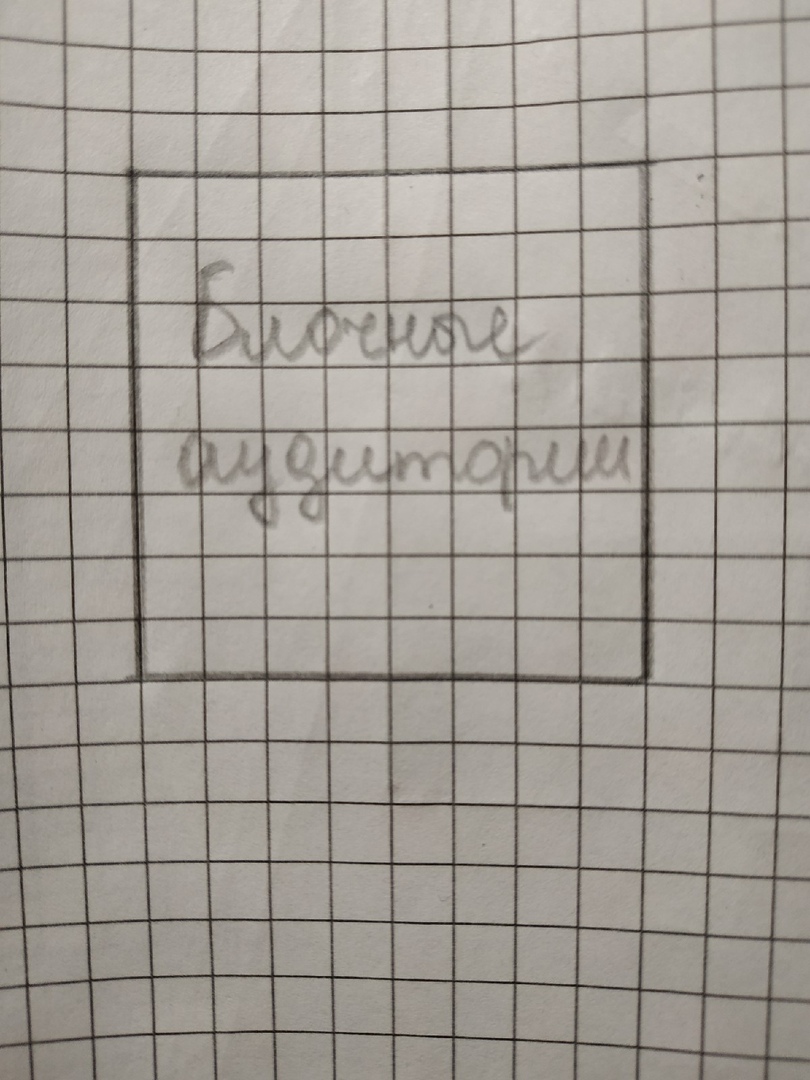 Блочные
аудитории